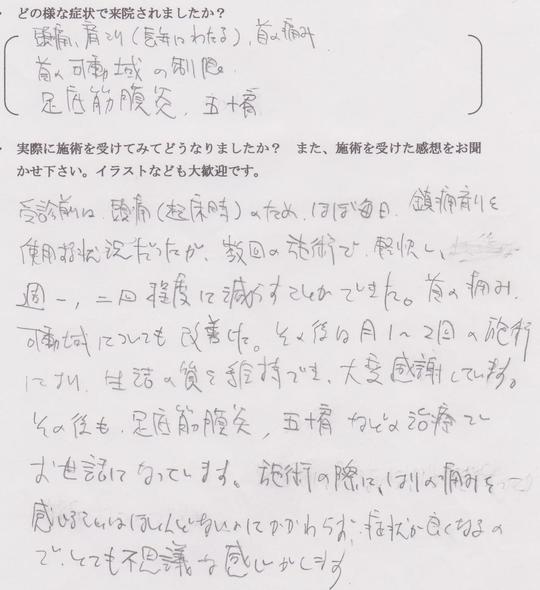 ・ どの様な症状で来院されましたか？
頭痛、肩こり（長年にわたる）、首の痛み
首の可動域の制限
足底筋膜炎、五十肩
・ 実際に施術を受けてみてどうなりましたか？ また、施術を受けた感想をお聞
かせ下さい。イラストなども大歓迎です。
受診前は、頭痛（起床時）のため、ほぼ毎日、鎮痛剤を
使用する状況だったが、数回の施術で、軽快し、
週一、二回程度に減らすことができました。首の痛み、
可動域についても改善した。その後は月1〜2回の施術
により、生活の質を維持でき、大変感謝しています。
その後も、足底筋膜炎、五十肩などの治療で
お世話になっています。施術の際に、はりの痛みを
感じることはほとんどないのにかかわらず、症状が良くなるの
で、とても不思議な感じがします